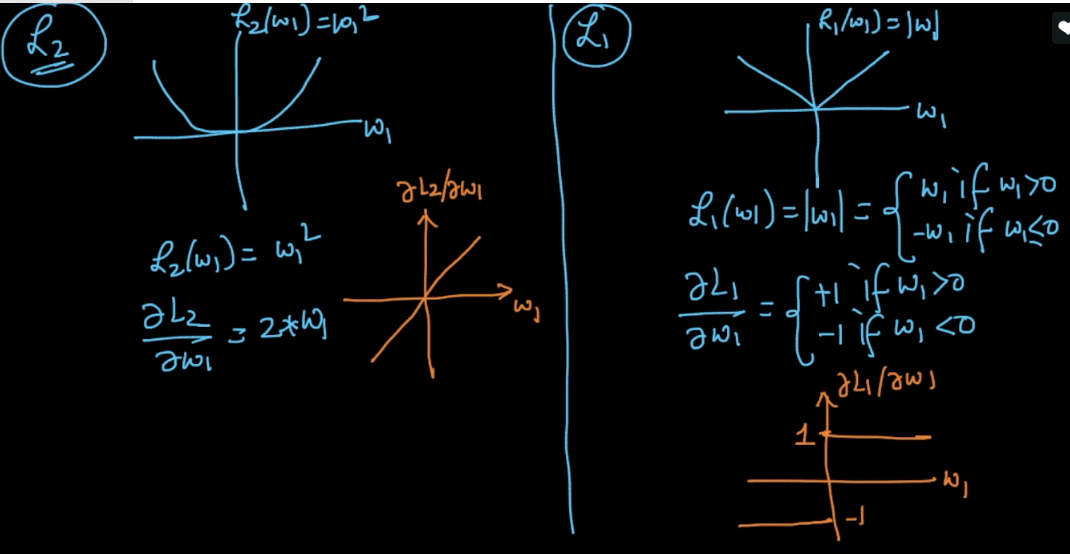 L₂
L₂(w₁) = w₁²
w₁
∂L₂/∂w₁
w₁
L₂(w₁) = w₁²
∂L₂
∂w₁
= 2*w₁
L₁
L₁(w₁) = |w₁|
w₁
L₁(w₁) = |w₁| = { w₁ if w₁>0
-w₁ if w₁≤0
∂L₁
∂w₁
= { +1 if w₁>0
-1 if w₁<0
∂L₁/∂w₁
1
w₁
-1